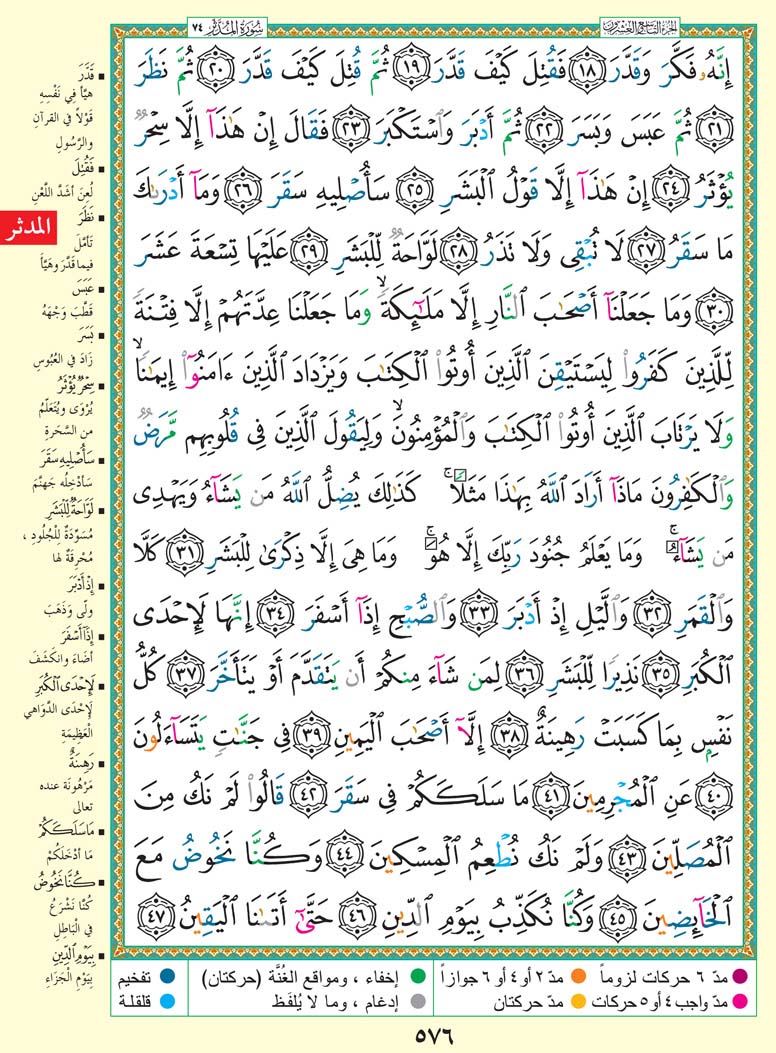 الجزء التاسع والعشرون
سُورَةُ المُدَّثِّر ٧٤
إِنَّهُۥ فَكَّرَ وَقَدَّرَ ١٨ فَقُتِلَ كَيْفَ قَدَّرَ ١٩ ثُمَّ قُتِلَ كَيْفَ قَدَّرَ ٢٠ ثُمَّ نَظَرَ
٢١ ثُمَّ عَبَسَ وَبَسَرَ ٢٢ ثُمَّ أَدْبَرَ وَٱسْتَكْبَرَ ٢٣ فَقَالَ إِنْ هَٰذَآ إِلَّا سِحْرٌ
يُؤْثَرُ ٢٤ إِنْ هَٰذَآ إِلَّا قَوْلُ ٱلْبَشَرِ ٢٥ سَأُصْلِيهِ سَقَرَ ٢٦ وَمَآ أَدْرَىٰكَ
مَا سَقَرُ ٢٧ لَا تُبْقِى وَلَا تَذَرُ ٢٨ لَوَّاحَةٌ لِّلْبَشَرِ ٢٩ عَلَيْهَا تِسْعَةَ عَشَرَ
٣٠ وَمَا جَعَلْنَآ أَصْحَٰبَ ٱلنَّارِ إِلَّا مَلَٰٓئِكَةً ۙ وَمَا جَعَلْنَا عِدَّتَهُمْ إِلَّا فِتْنَةً
لِّلَّذِينَ كَفَرُوا۟ لِيَسْتَيْقِنَ ٱلَّذِينَ أُوتُوا۟ ٱلْكِتَٰبَ وَيَزْدَادَ ٱلَّذِينَ ءَامَنُوٓا۟ إِيمَٰنًا ۙ
وَلَا يَرْتَابَ ٱلَّذِينَ أُوتُوا۟ ٱلْكِتَٰبَ وَٱلْمُؤْمِنُونَ ۙ وَلِيَقُولَ ٱلَّذِينَ فِى قُلُوبِهِم مَّرَضٌ
وَٱلْكَٰفِرُونَ مَاذَآ أَرَادَ ٱللَّهُ بِهَٰذَا مَثَلًا ۚ كَذَٰلِكَ يُضِلُّ ٱللَّهُ مَن يَشَآءُ وَيَهْدِى
مَن يَشَآءُ ۚ وَمَا يَعْلَمُ جُنُودَ رَبِّكَ إِلَّا هُوَ ۚ وَمَا هِىَ إِلَّا ذِكْرَىٰ لِلْبَشَرِ ٣١ كَلَّا
وَٱلْقَمَرِ ٣٢ وَٱلَّيْلِ إِذْ أَدْبَرَ ٣٣ وَٱلصُّبْحِ إِذَآ أَسْفَرَ ٣٤ إِنَّهَا لَإِحْدَى
ٱلْكُبَرِ ٣٥ نَذِيرًا لِّلْبَشَرِ ٣٦ لِمَن شَآءَ مِنكُمْ أَن يَتَقَدَّمَ أَوْ يَتَأَخَّرَ ٣٧ كُلُّ
نَفْسٍۭ بِمَا كَسَبَتْ رَهِينَةٌ ٣٨ إِلَّآ أَصْحَٰبَ ٱلْيَمِينِ ٣٩ فِى جَنَّٰتٍ يَتَسَآءَلُونَ
٤٠ عَنِ ٱلْمُجْرِمِينَ ٤١ مَا سَلَكَكُمْ فِى سَقَرَ ٤٢ قَالُوا۟ لَمْ نَكُ مِنَ
ٱلْمُصَلِّينَ ٤٣ وَلَمْ نَكُ نُطْعِمُ ٱلْمِسْكِينَ ٤٤ وَكُنَّا نَخُوضُ مَعَ
ٱلْخَآئِضِينَ ٤٥ وَكُنَّا نُكَذِّبُ بِيَوْمِ ٱلدِّينِ ٤٦ حَتَّىٰٓ أَتَىٰنَا ٱلْيَقِينُ ٤٧
قَدَّرَ
هَيَّأَ فِي نَفْسِهِ
قَوْلاً في القرآنِ
والرَّسُولِ
فَقُتِلَ
لُعِنَ أشَدَّ اللَّعْنِ
نَظَرَ
تَأمَّلَ
فيما قَدَّرَ وَهَيَّأَ
عَبَسَ
قَطَّبَ وَجْهَهُ
بَسَرَ
زَادَ في العُبُوسِ
سِحْرٌ يُؤْثَرُ
يُرْوَى ويُتَعَلَّمُ
من السَّحَرةِ
سَأُصْلِيهِ سَقَرَ
سَأُدْخِلُه جَهَنَّمَ
لَوَّاحَةٌ لِّلْبَشَرِ
مُسَوِّدَةٌ لِلْجُلُودِ ،
مُحْرِقَةٌ لها
إِذْ أَدْبَرَ
ولَّى وذَهَبَ
إِذَآ أَسْفَرَ
أضَاءَ وانكَشَفَ
لَإِحْدَى ٱلْكُبَرِ
لَإِحْدَى الدَّوَاهي
العَظِيمَةِ
رَهِينَةٌ
مَرْهُونَة عنده
تعالى
مَا سَلَكَكُمْ
مَا أدْخَلَكُمْ
كُنَّا نَخُوضُ
كُنَّا نَشْرَعُ
في الْبَاطِلِ
بِيَوْمِ ٱلدِّينِ
بِيَوْمِ الْجَزَاءِ
المدثر
مدّ ٦ حركات لزوماً ● مدّ ٢ أو ٤ أو ٦ جوازاً ● إخفاء ، ومواقع الغُنَّة (حركتان) ● تفخيم
مدّ واجب ٤ أو ٥ حركات ● مدّ حركتان ● إدغام ، وما لا يُلفَظ ● قلقلة
٥٧٦